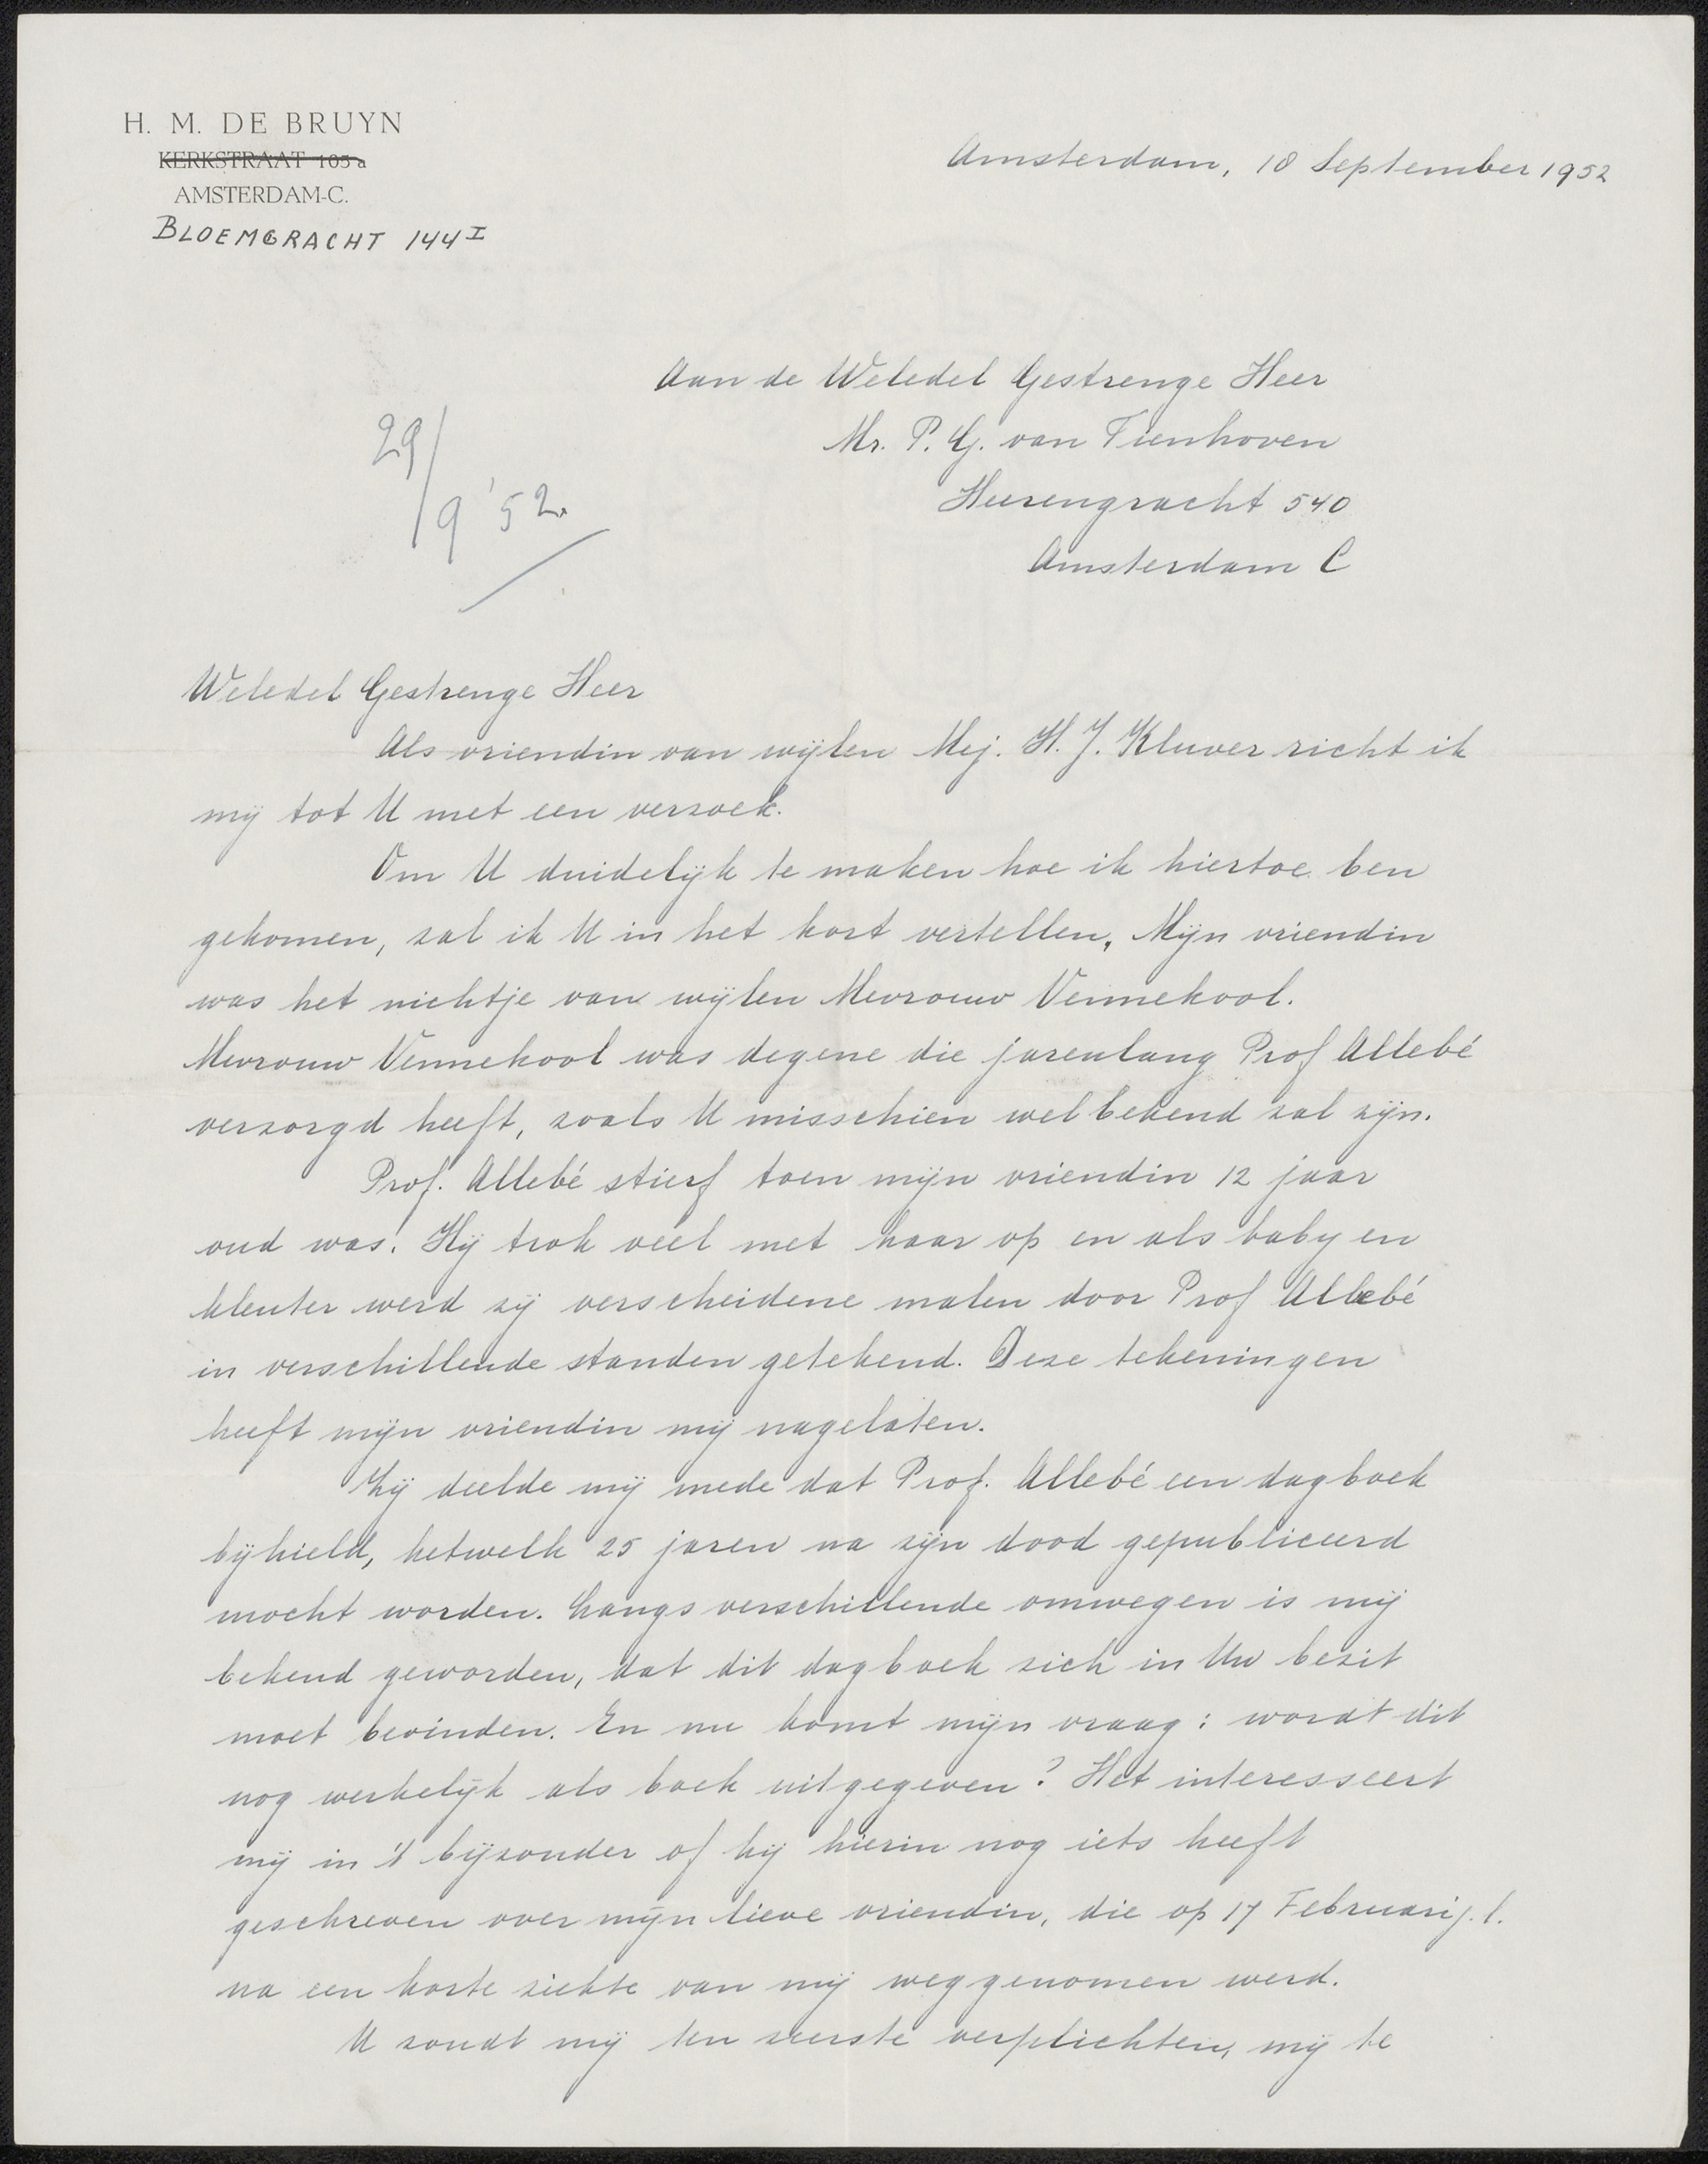 H. M. DE BRUYN
KERKSTRAAT 105a
AMSTERDAM-C.
BLOEMGRACHT 144 I
Amsterdam, 18 September 1952
Aan de Weledel Gestrenge Heer
Mr. P. G. van Tienhoven
Heerengracht 540
Amsterdam C
29/9 '52.
Weledel Gestrenge Heer
Als vriendin van wijlen Mej. H. J. Kluver richt ik
mij tot U met een verzoek.
Om U duidelijk te maken hoe ik hiertoe ben
gekomen, zal ik U in het kort vertellen. Mijn vriendin
was het nichtje van wijlen Mevrouw Vennekool.
Mevrouw Vennekool was degene die jarenlang Prof Allebé
verzorgd heeft, zoals U misschien wel bekend zal zijn.
Prof. Allebé stierf toen mijn vriendin 12 jaar
oud was. Hij trok veel met haar op en als baby en
kleuter werd zij verscheidene malen door Prof Allebé
in verschillende standen getekend. Deze tekeningen
heeft mijn vriendin mij nagelaten.
Zij deelde mij mede dat Prof. Allebé een dagboek
bijhield, hetwelk 25 jaren na zijn dood gepubliceerd
mocht worden. Langs verschillende omwegen is mij
bekend geworden, dat dit dagboek zich in Uw bezit
moet bevinden. En nu komt mijn vraag: wordt dit
nog werkelijk als boek uitgegeven? Het interesseert
mij in 't bijzonder of hij hierin nog iets heeft
geschreven over mijn lieve vriendin, die op 17 Februari j.l.
na een korte ziekte van mij weggenomen werd.
U zoudt mij ten zeerste verplichten, mij te